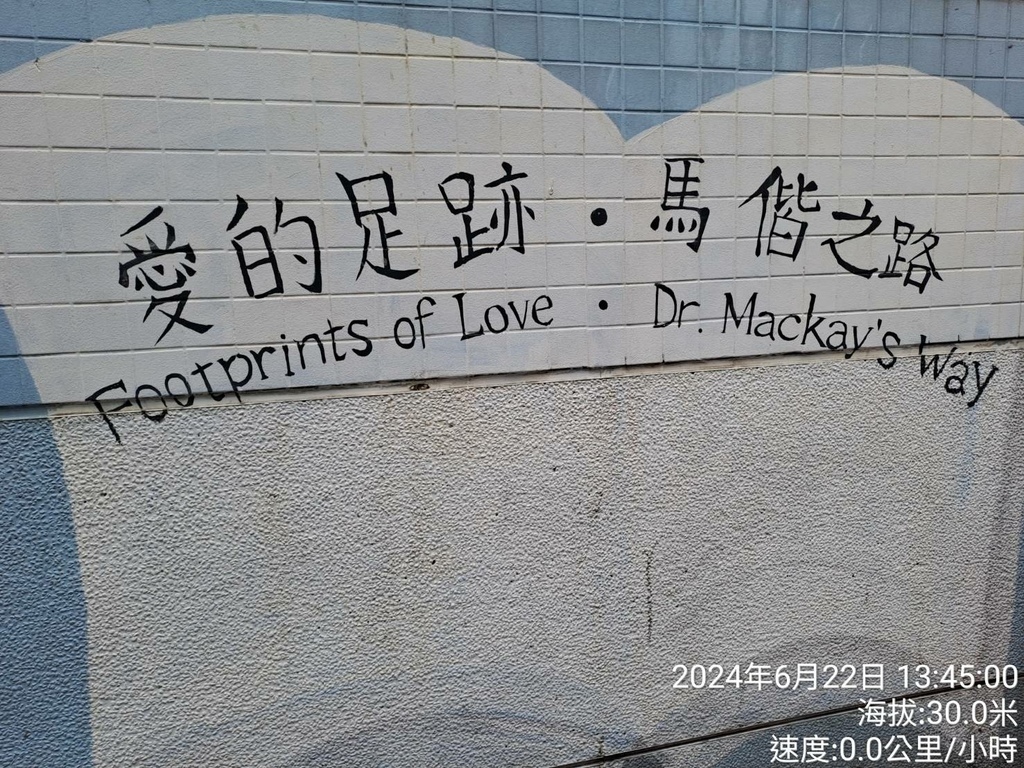 愛的足跡・馬偕之路
Footprints of Love · Dr. Mackay's Way
2024年6月22日 13:45:00
海拔:30.0米
速度:0.0公里/小時